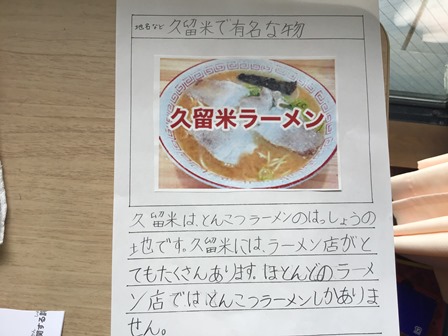 地名など 久留米で有名な物
久留米ラーメン
久留米は、とんこつラーメンのはっしょうの
地です。久留米には、ラーメン店がと
てもたくさんあります。ほとんどのラーメ
ン店では、とんこつラーメンしかありま
せん。